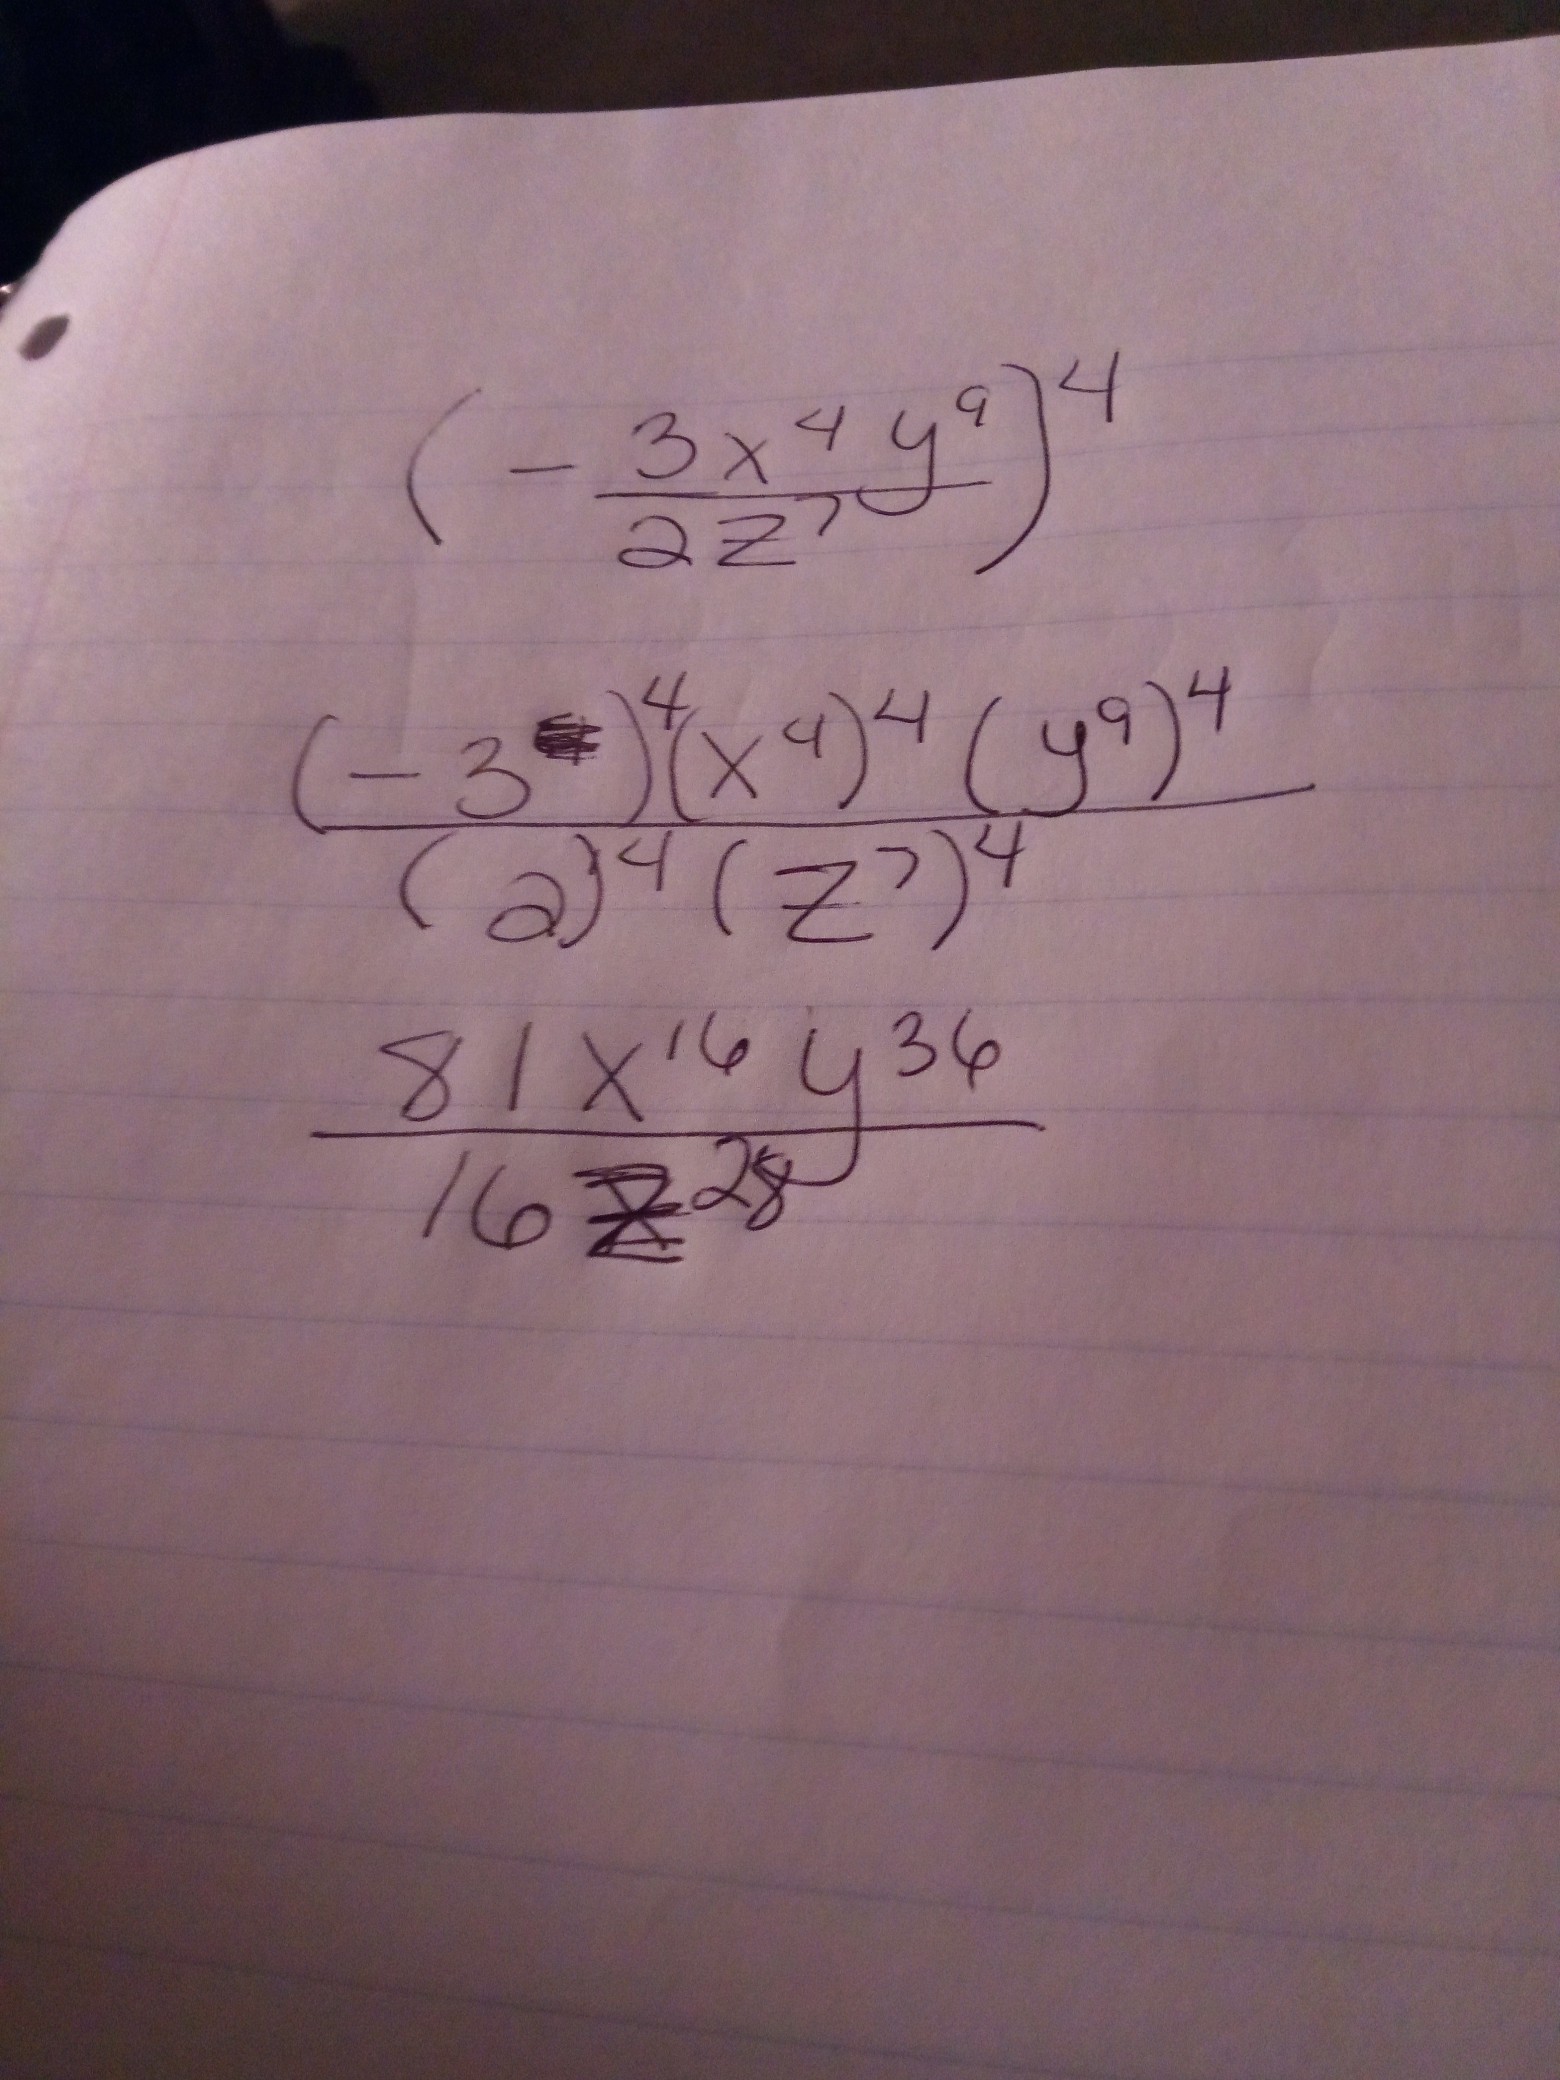 (- 3x⁴y⁹ / 2z⁷)⁴
(-3)⁴(x⁴)⁴(y⁹)⁴ / (2)⁴(z⁷)⁴
81x¹⁶y³⁶ / 16z²⁸